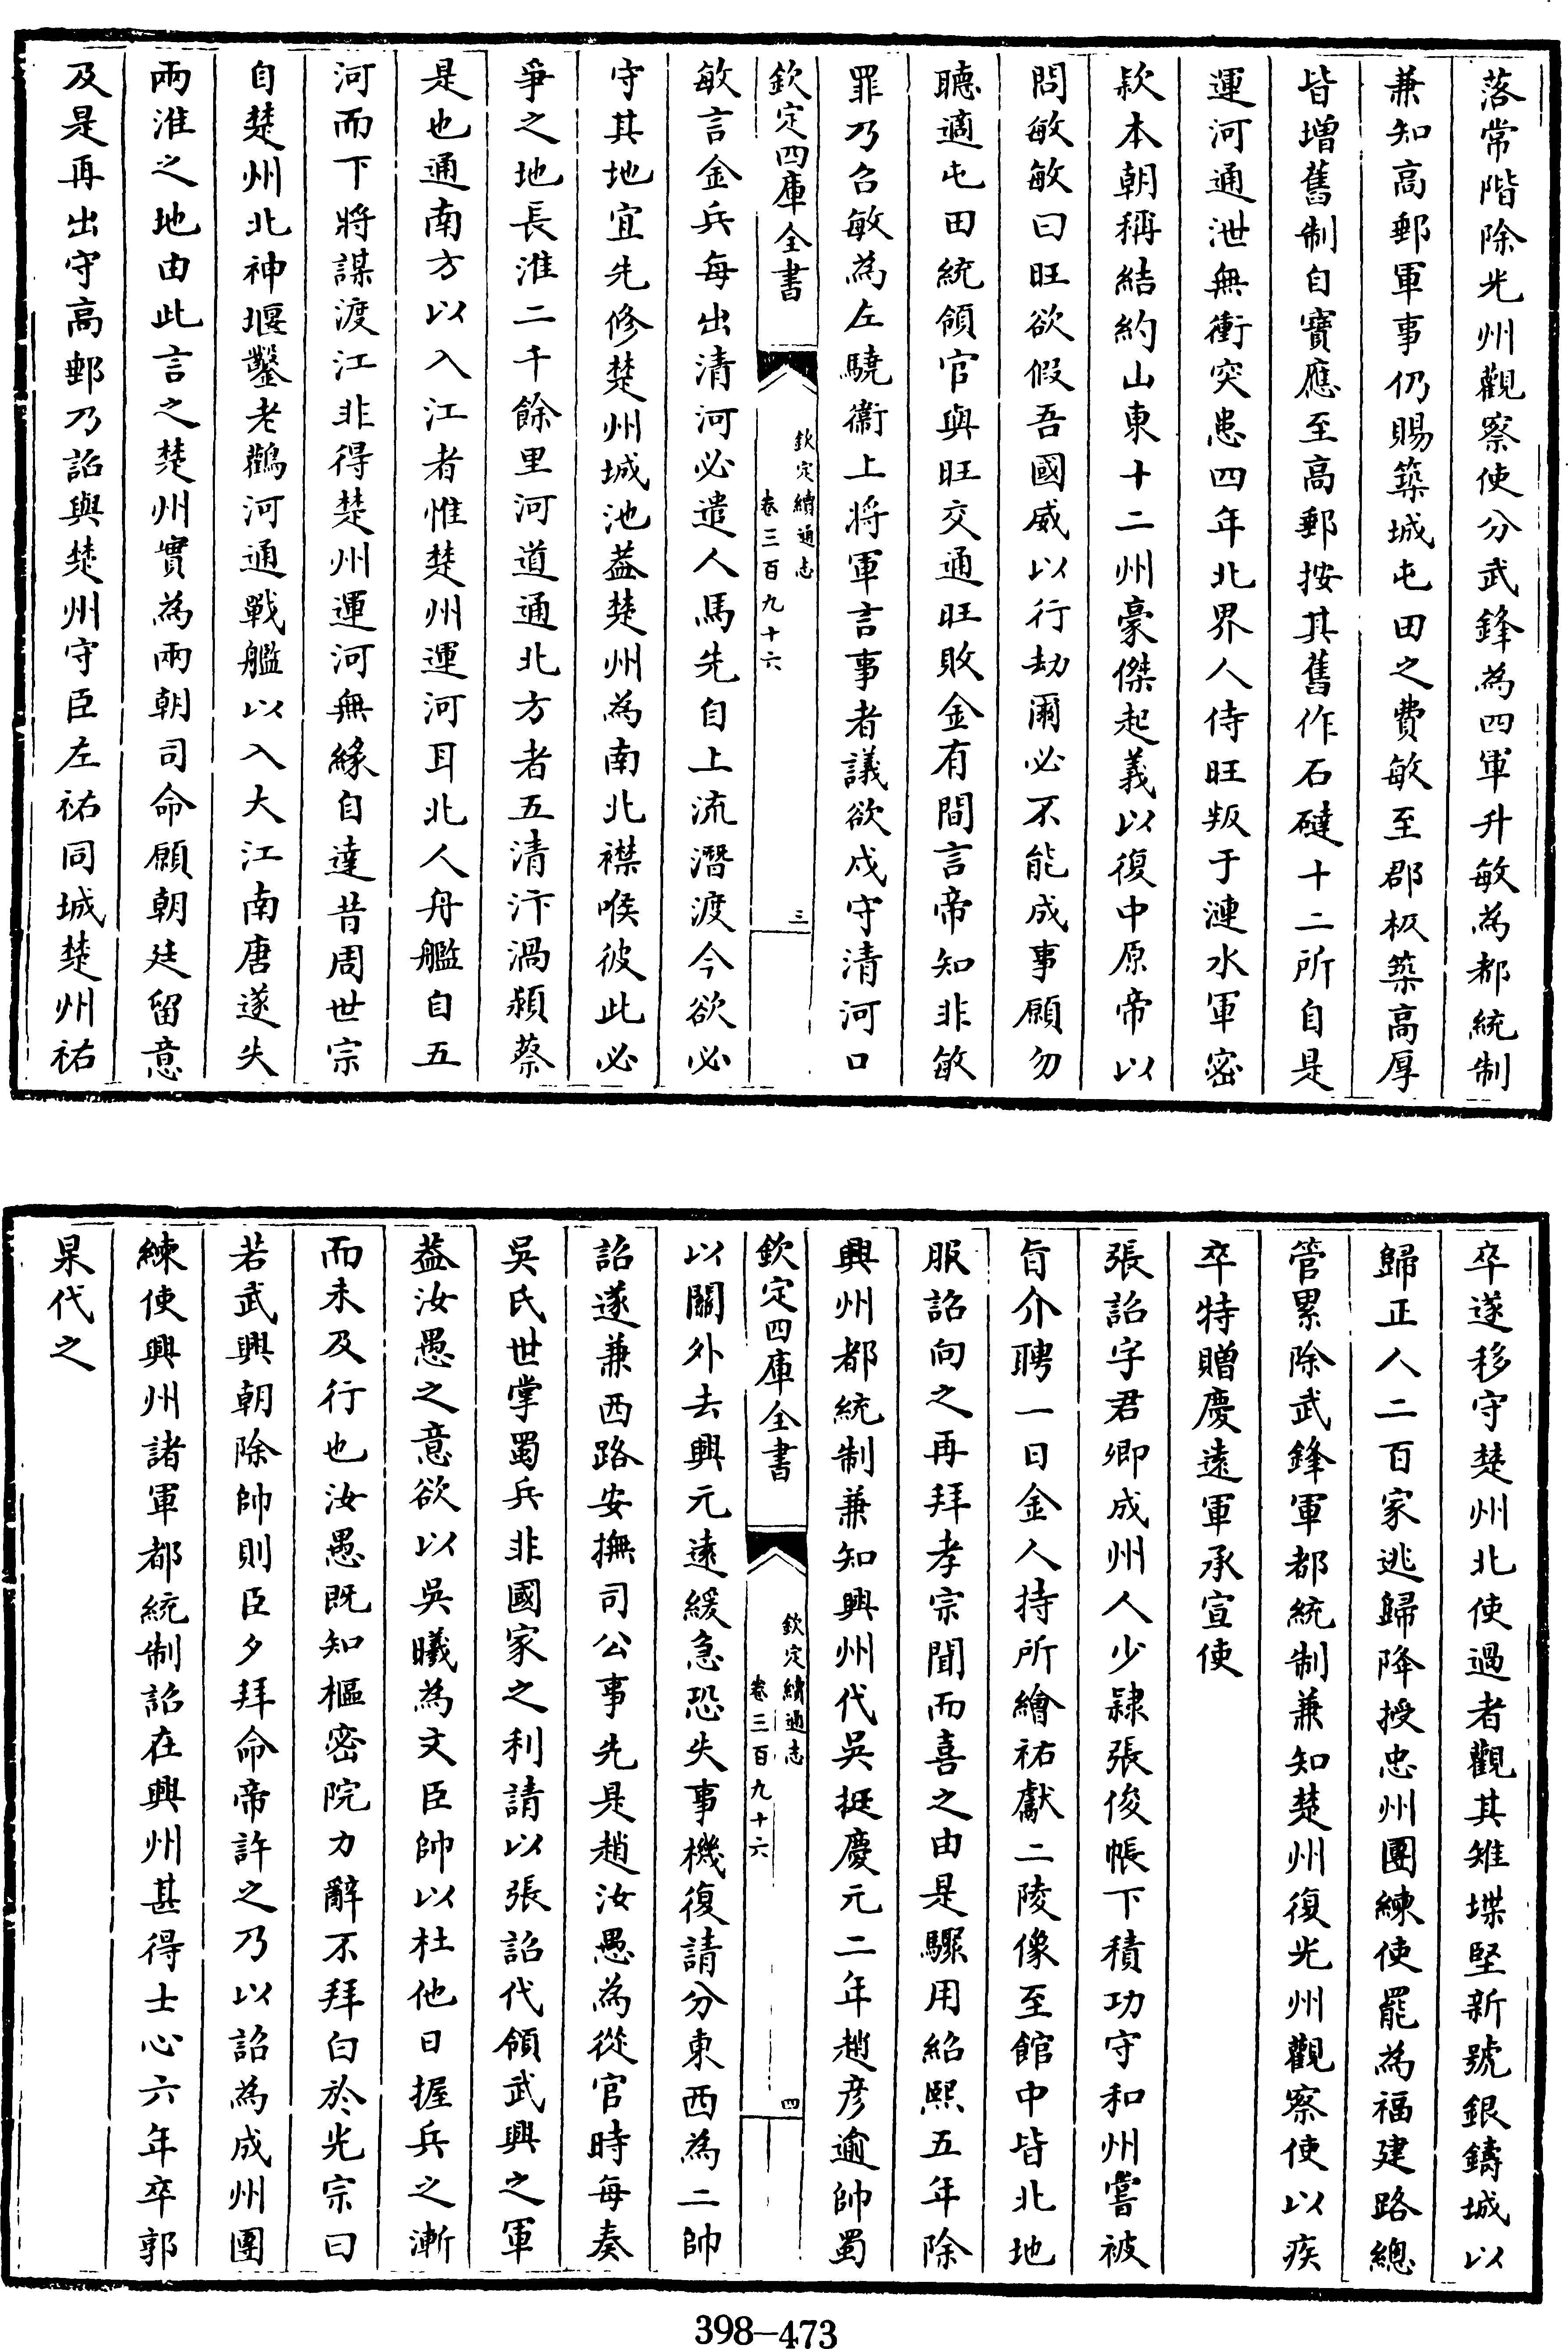 落常階除光州觀察使分武鋒為四軍升敏為都統制
兼知高郵軍事仍賜築城屯田之費敏至郡板築高厚
皆增舊制自寶應至高郵按其舊作石䃮十二所自是
運河通泄無衝突患四年北界人侍旺叛于漣水軍密
款本朝稱結約山東十二州豪傑起義以復中原帝以
問敏敏曰旺欲假吾國威以行刼爾必不能成事願勿
聽適屯田統領官與旺交通旺敗金有間言帝知非敏
罪乃召敏為左驍衞上將軍言事者議欲戍守清河口
欽定四庫全書
欽定續通志
卷三百九十六
三
敏言金兵每出清河必遣人馬先自上流潛渡今欲必
守其地宜先修楚州城池蓋楚州為南北襟喉彼此必
爭之地長淮二千餘里河道通北方者五清汴渦潁蔡
是也通南方以入江者惟楚州運河耳北人舟艦自五
河而下將謀渡江非得楚州運河無緣自達昔周世宗
自楚州北神堰鑿老鸛河通戰艦以入大江南唐遂失
兩淮之地由此言之楚州實為兩朝司命願朝廷留意
及是再出守高郵乃詔與楚州守臣左祐同城楚州祐
卒遂移守楚州北使過者觀其雉堞堅新號銀鑄城以
歸正人二百家逃歸降授忠州團練使罷為福建路總
管累除武鋒軍都統制兼知楚州復光州觀察使以疾
卒特贈慶遠軍承宣使
張詔字君卿成州人少隸張俊帳下積功守和州嘗被
旨介聘一日金人持所繪祐獻二陵像至館中皆北地
服詔向之再拜孝宗聞而喜之由是驟用紹熙五年除
興州都統制兼知興州代吳挺慶元二年趙彥逾帥蜀
欽定四庫全書
欽定續通志
卷三百九十六
四
以關外去興元遠緩急恐失事機復請分東西為二帥
詔遂兼西路安撫司公事先是趙汝愚為從官時每奏
吳氏世掌蜀兵非國家之利請以張詔代領武興之軍
蓋汝愚之意欲以吳曦為文臣帥以杜他日握兵之漸
而未及行也汝愚既知樞密院力辭不拜白於光宗曰
若武興朝除帥則臣夕拜命帝許之乃以詔為成州團
練使興州諸軍都統制詔在興州甚得士心六年卒郭
杲代之
398—473